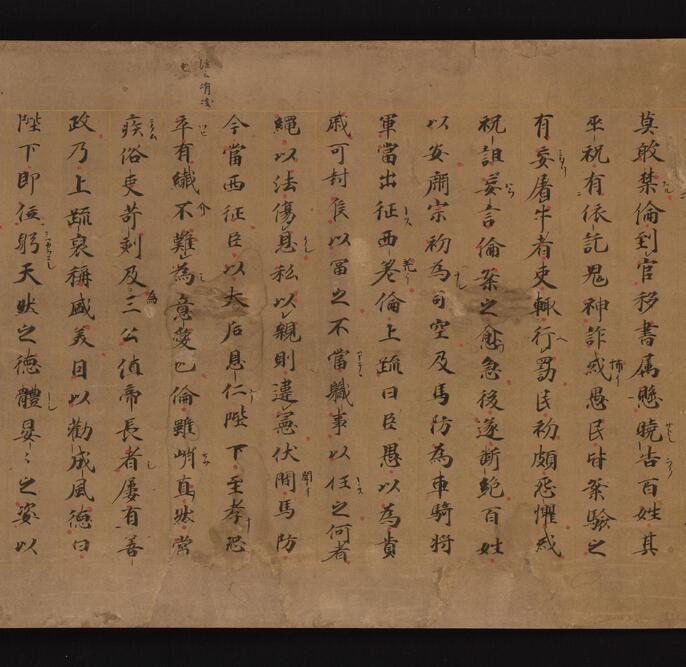 莫敢禁倫到官移書属縣曉告百姓其
巫祝有依託鬼神詐或愚民皆案驗之
有妄屠牛者吏輒行罰民初頗恐懼或
祝詛妄言倫案之愈急後遂断絶百姓
以安肅宗初為司空及馬防為車騎将
軍當出征西羌倫上疏曰臣愚以為貴
戚可封侯以冨之不當職事以任之何者
繩以法傷恩私以親則違憲伏聞馬防
今當西征臣以太后恩仁陛下至孝恐
卒有纎介不難為意愛也倫雖峭直然常
疾俗吏苛刻及為三公值帝長者屢有善
政乃上疏襃稱盛美因以勸成風德曰
陛下即位躬天然之德體晏〻之姿以